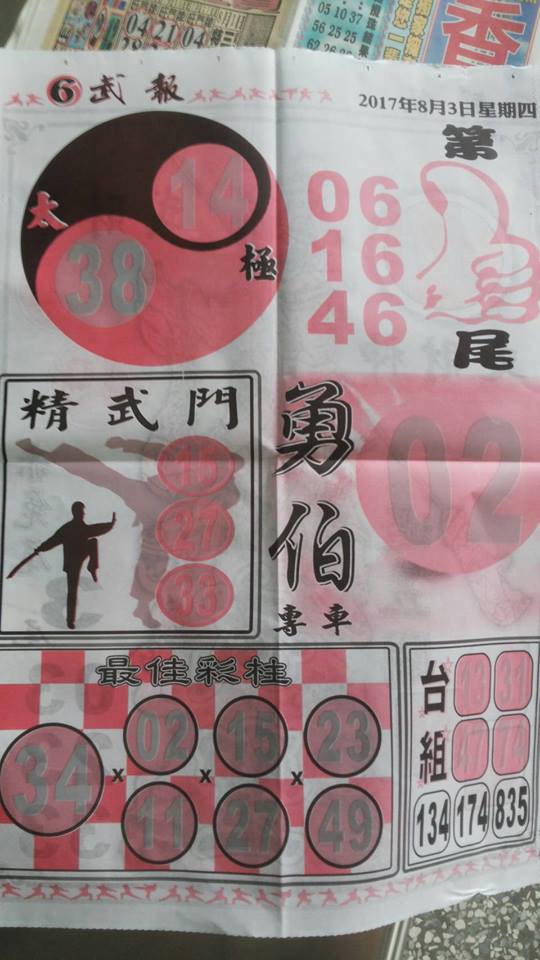 04 21 04
05 10 37
56 25 25
香
6 武報
2017年8月3日星期四
太極
14
38
第尾
06
16
46
精武門
15
27
33
勇伯專車
02
最佳彩柱
34 x 02 x 15 x 23
11 27 49
台組
13 31
47 74
134 174 835